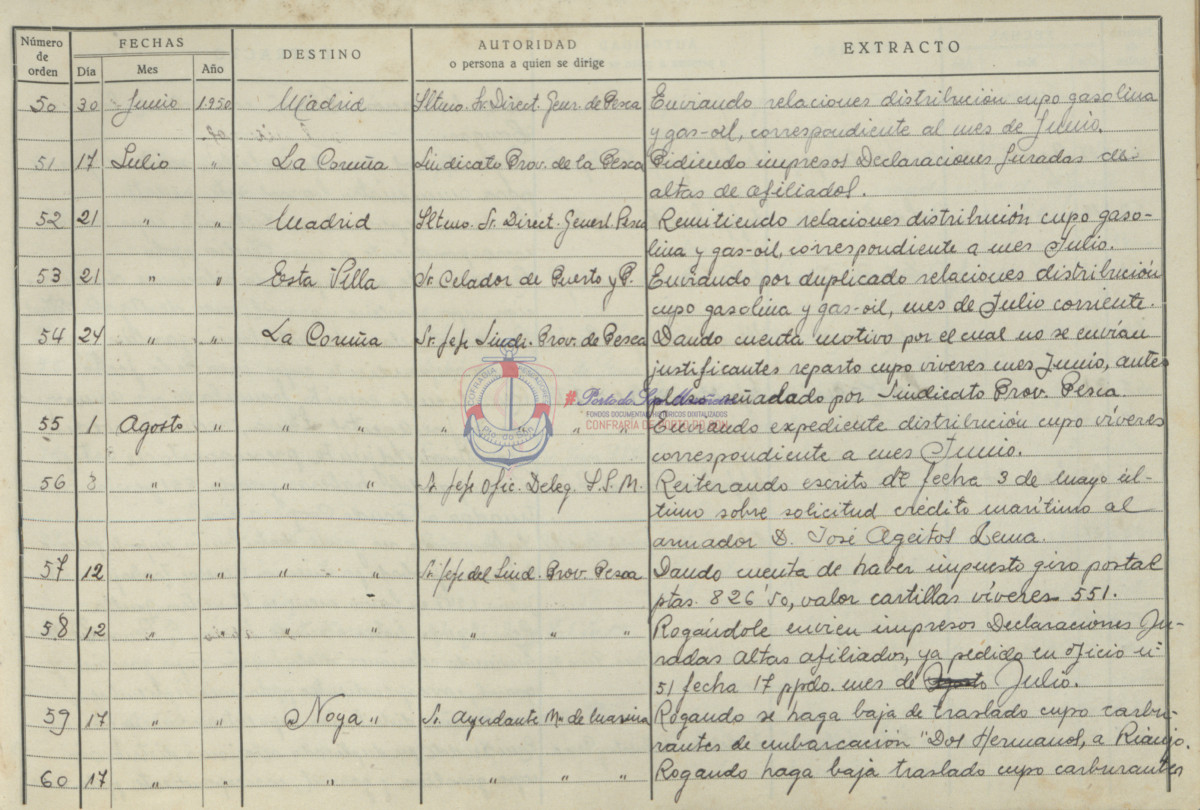 Número de orden FECHAS DESTINO AUTORIDAD o persona a quien se dirige EXTRACTO
Día Mes Año
50 30 Junio 1950 Madrid Iltmo. Sr. Direct. Genr. de Pesca Enviando relaciones distribución cupo gasolina
y gas-oil, correspondiente al mes de Junio.
51 17 Julio " La Coruña Sindicato Prov. de la Pesca Pidiendo impresos Declaraciones Juradas de
altas de afiliados.
52 21 " " Madrid Iltmo. Sr. Direct. Generl. Pesca Remitiendo relaciones distribución cupo gaso-
lina y gas-oil, correspondiente a mes Julio.
53 21 " " Esta Villa Sr. Celador de Puerto y P. Enviando por duplicado relaciones distribución
cupo gasolina y gas-oil, mes de Julio corriente.
54 24 " " La Coruña Sr. Jefe Sindi. Prov. de Pesca Dando cuenta motivo por el cual no se envían
justificantes reparto cupo viveres mes Junio, antes
plazo señadado por Sindicato Prov. Pesca.
55 1 Agosto " " " " " " " Enviando expediente distribución cupo víveres
correspondiente a mes Junio.
56 8 " " " " Sr. Jefe Ofic. Deleg. S.S.M. Reiterando escrito de fecha 3 de mayo úl-
timo sobre solicitud crédito marítimo al
armador D. José Ageitos Lema.
57 12 " " " " Sr. Jefe del Sind. Prov. Pesca Dando cuenta de haber impuesto giro postal
ptas. 826'50, valor cartillas víveres 551.
58 12 " " " " " " " Rogándole envien impresos Declaraciones Ju-
radas altas afiliados, ya pedido en oficio nº
51 fecha 17 ppdo. mes de Agosto Julio.
59 17 " " Noya " Sr. Ayudante Mª de Marina Rogando se haga baja de traslado cupo carbu-
rantes de embarcación "Dos Hermanos, a Rianjo.
60 17 " " " " " " Rogando haga baja traslado cupo carburantes
COFRADIA PESCADORES
Pto. do Son
#Porto do Son
FONDOS DOCUMENTAIS HISTÓRICOS DIGITALIZADOS
CONFRARÍA DE PORTO DO SON